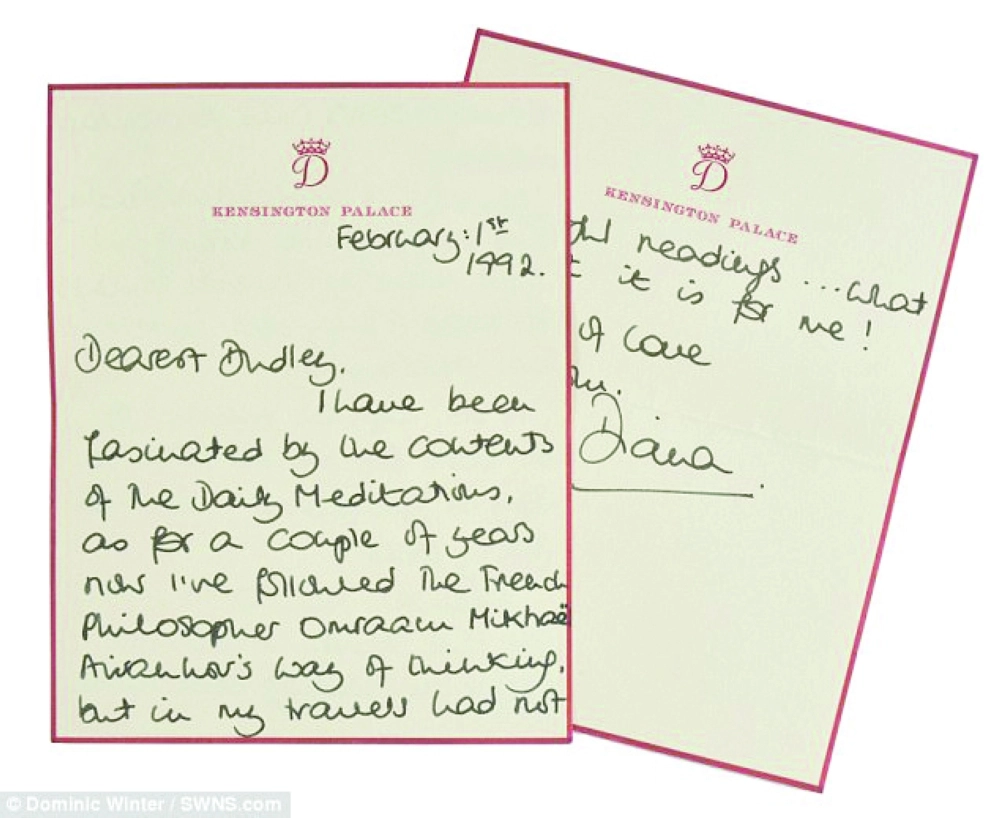 D
KENSINGTON PALACE
February: 1st
1992.
Dearest Dudley,
I have been
fasinated by the contents
of the Daily Meditations,
as for a couple of years
now I've followed the French
Philosopher Omraam Mikhaë
Aivanhov's way of thinking,
but in my travels had not
D
KENSINGTON PALACE
readings ... what
it is for me!
of love
Diana.
© Dominic Winter / SWNS.com